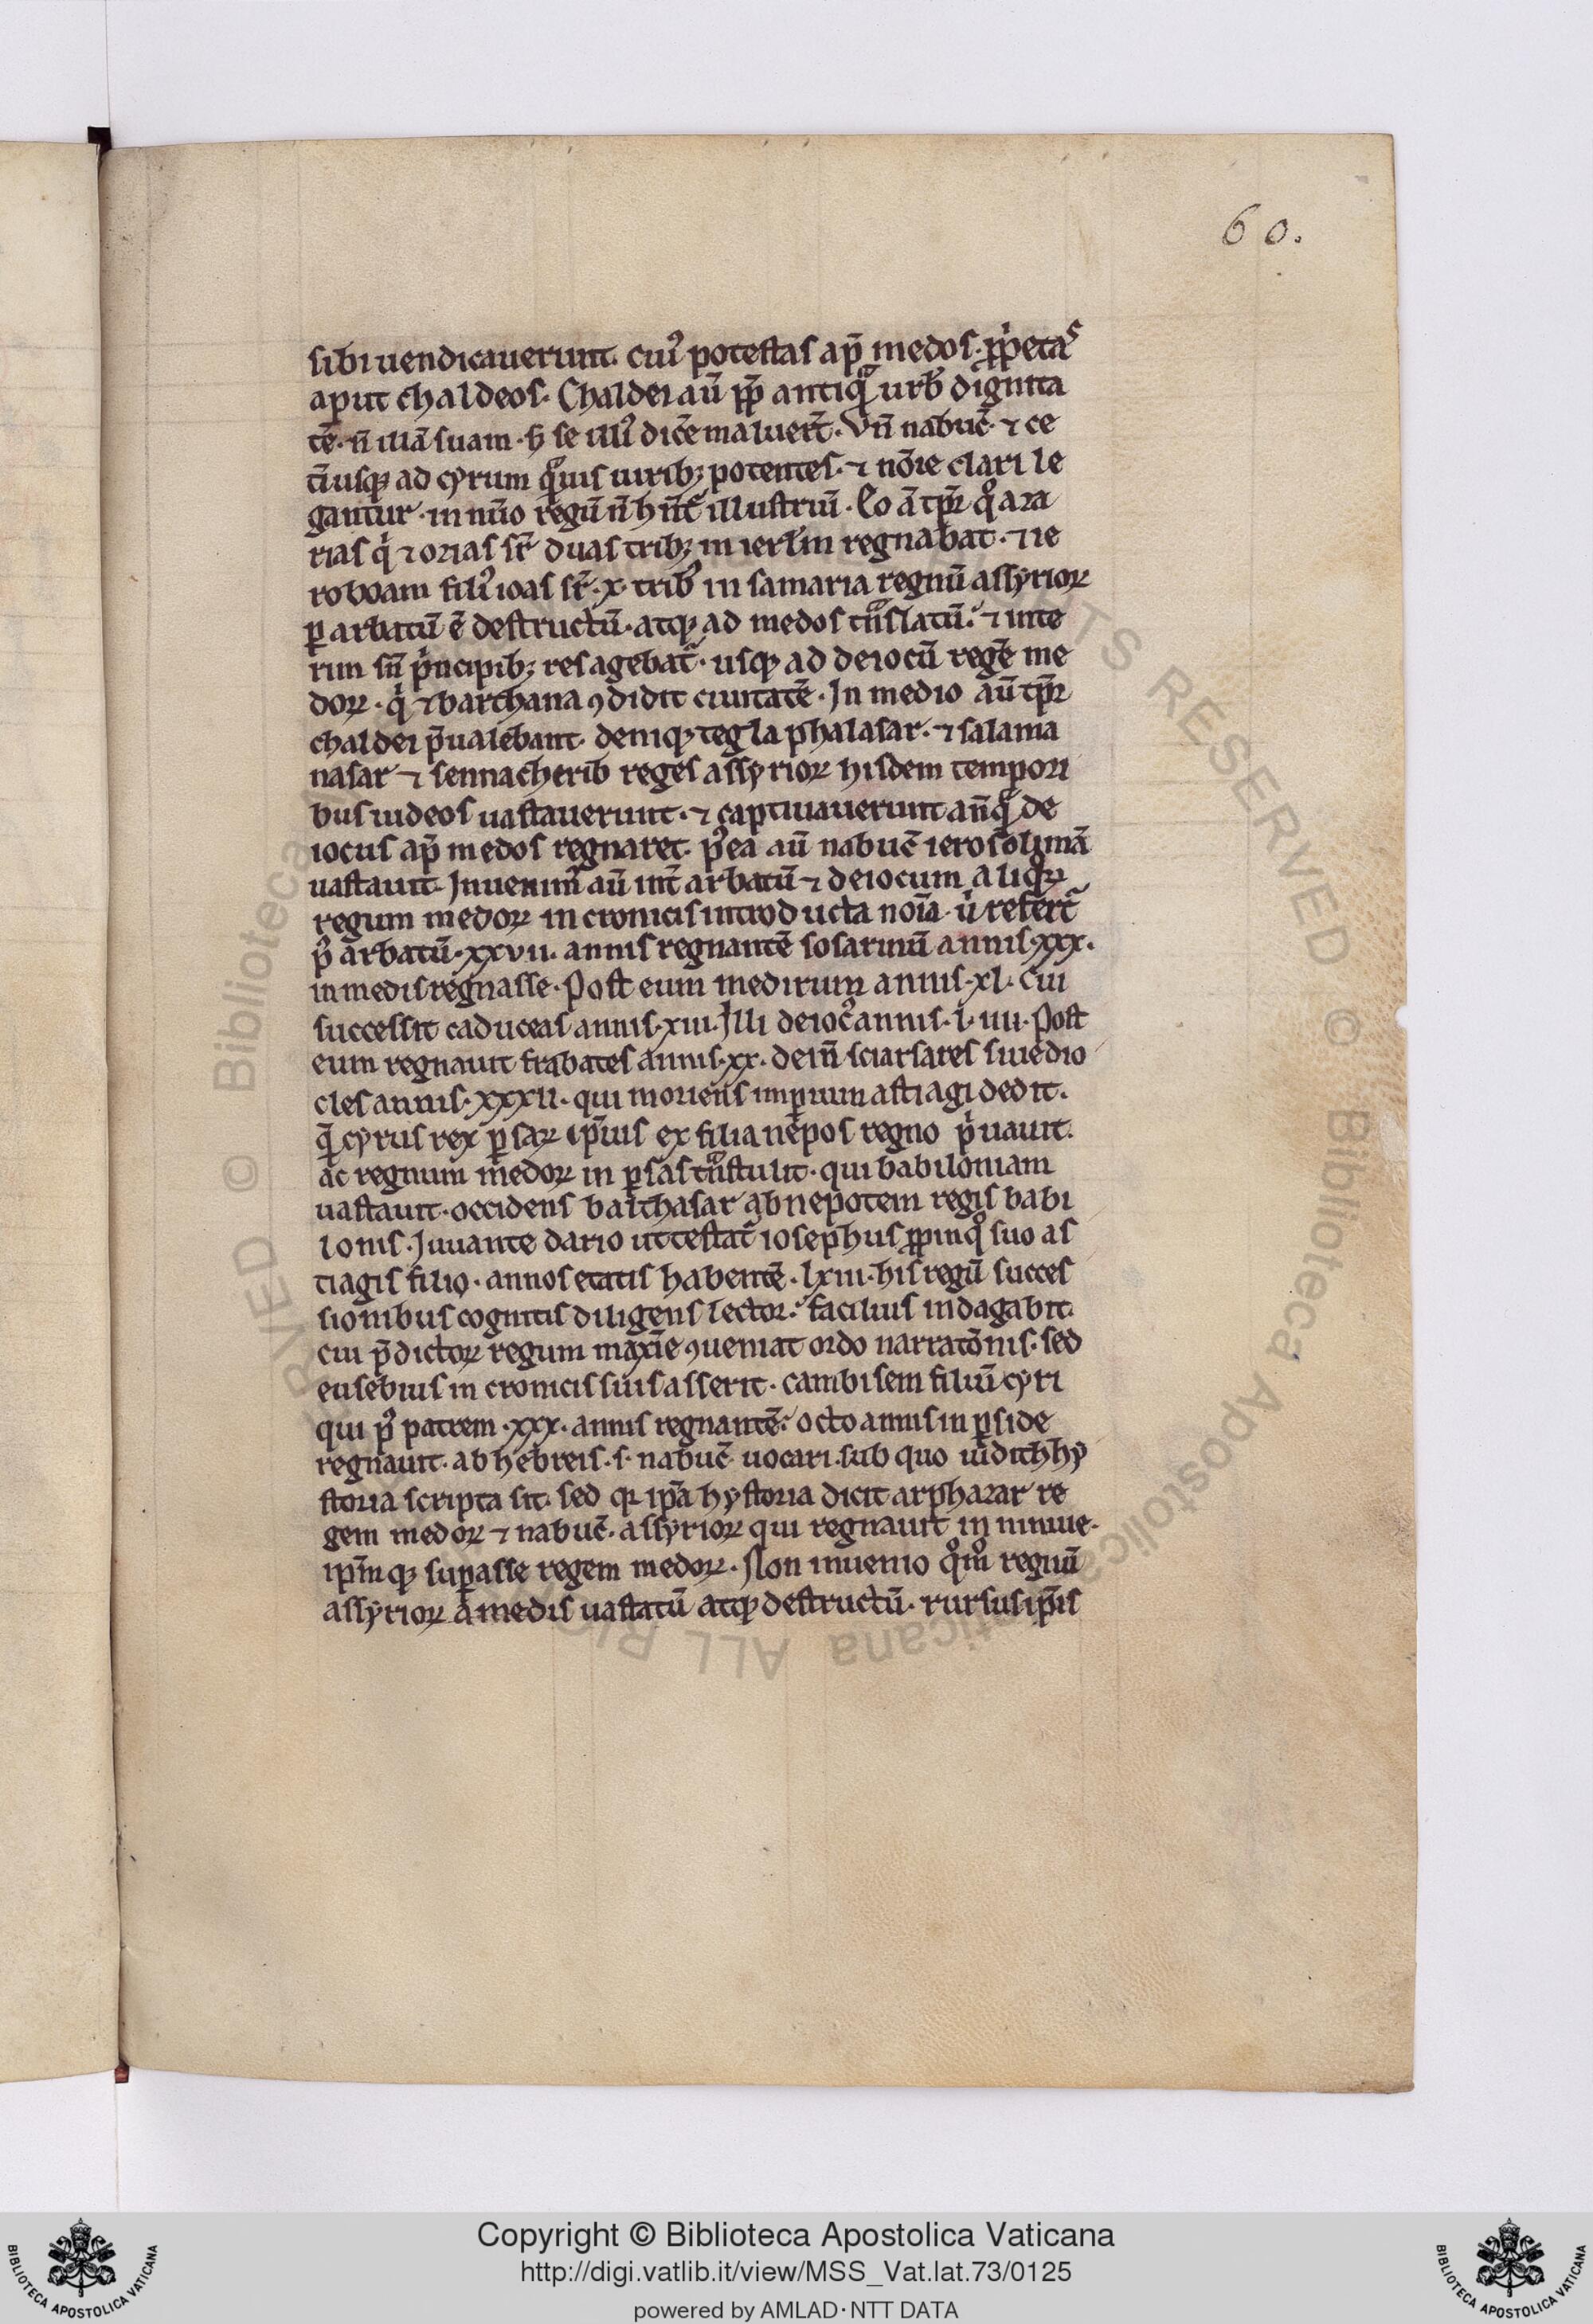 60.
sibi uendicauerunt. cuiꝰ potestas ap̄ medos. ꝓp̱etaˢ
aput chaldeos. Chaldei aū ꝓp̄ antiq̄ urb̄ dignita
tē. n̄ illā suam. ꝫ se illiꝰ dic̄e maluer̄t. Vn̄ nabuc̄. ⁊ ce
t̄i usqꝫ ad cyrum qͣuis uiribꝫ potentes. ⁊ nōie clari le
gantur. in nūo regū n̄ hn̄t᷑ illustriū. Eo ā tp̄r qͦ aza
rias qͥ ⁊ ozias sr̄ duas tribꝫ in ierl̄m regnabat. ⁊ ie
roboam filiꝰ ioas sr̄ .x. tribꝰ in samaria regnū assyrioꝝ
ꝑ arbatū ē destructū. atqꝫ ad medos tn̄slatū. ⁊ inte
rim sn̄ pͥncipibꝫ res agebat᷑. usqꝫ ad deiocū regē me
doꝝ. qͥ ⁊ barthana ꝯdidit ciuitatē. In medio aū tp̄r
chaldei p̄ualebant. deniqꝫ tegla phalasar. ⁊ salama
nasar ⁊ sennacherib reges assyrioꝝ hisdem tempori
bus iudeos uastauerunt. ⁊ captiuauerunt an̄qͣ de
iocus ap̄ medos regnaret. pꝰea aū nabuc̄ ierosolimā
uastauit. Inuenimꝰ aū int̄ arbatū ⁊ deiocum aliqͦꝝ
regum medoꝝ in cronicis introducta noīa. uͥ refert᷑
pꝰ arbatū .xxvii. annis regnantē sosarinū annis .xxx.
in medis regnasse. Post eum medirum annis .xl. cui
successit caduceas annis .xiii. Illi deiocꝰ annis .l.iiii. Post
eum regnauit frabates annis .xx. dein̄ sciarsares siue dio
cles annis .xxxii. qui moriens imꝑium astiagi dedit.
q̄ cyrus rex ꝑsaꝝ ip̄ius ex filia nepos regno pͥuauit.
ac regnum medoꝝ in ꝑsas tn̄stulit. qui babiloniam
uastauit. occidens balthasar abnepotem regis babi
lonis. Iuuante dario ut testat᷑ iosephus ꝓpinqͦ suo as
tiagis filio. annos etatis habentē .lxiii. his regū succes
sionibus cognitis diligens lector. facilius indagabit.
cui p̄dictoꝝ regum maxīe ꝯueniat ordo narratōnis. sed
eusebius in cronicis suis asserit. cambisem filiū cyri
qui pꝰ patrem .xxx. annis regnantē. octo annis in ꝑside
regnauit. ab hebreis .s. nabuc̄ uocari. sub quo iudith hy
storia scripta sit. sed qꝛ ip̄a hystoria dicit arphazar re
gem medoꝝ ⁊ nabuc̄. assyrioꝝ qui regnauit in niniue.
ip̄mqꝫ suꝑasse regem medoꝝ. Non inuenio qͦmͦ regnū
assyrioꝝ a medis uastatū atqꝫ destructū. rursus ip̄is
Copyright © Biblioteca Apostolica Vaticana
http://digi.vatlib.it/view/MSS_Vat.lat.73/0125
powered by AMLAD·NTT DATA